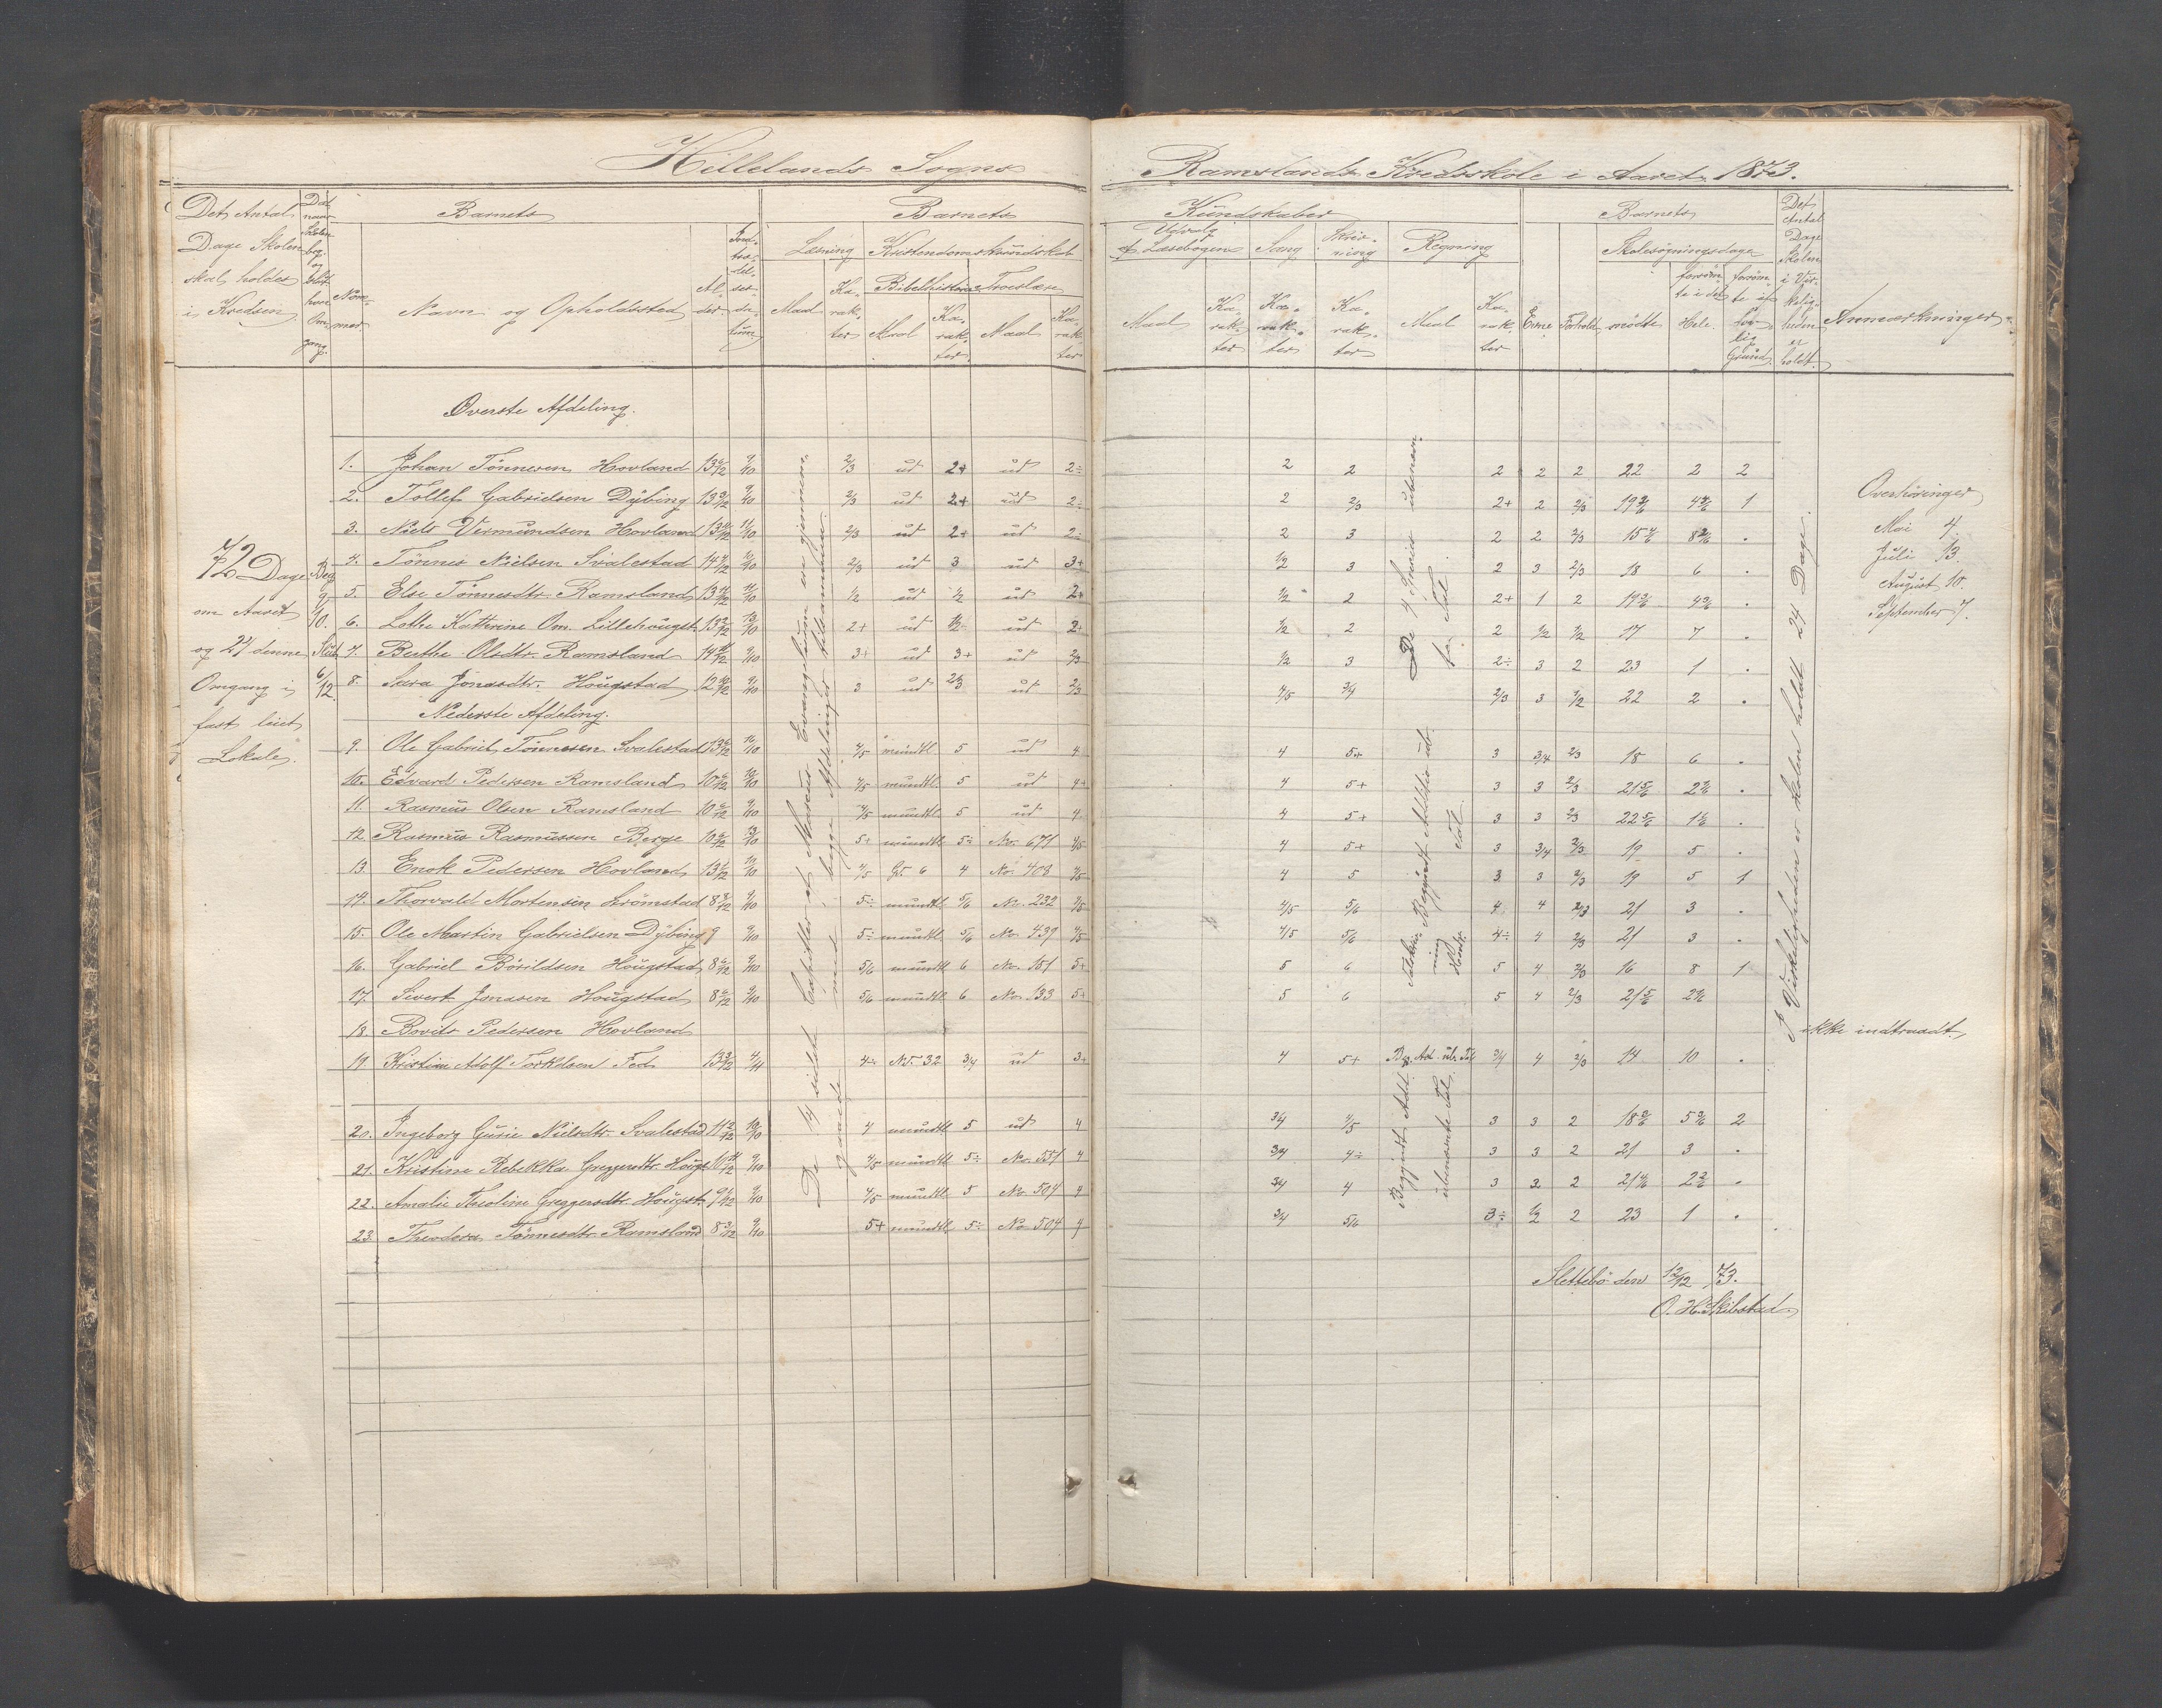 Hillelands Sogns
Ramslands Kredsskole i Aaret 1873.
Det Antal Dage Skolen skal holdes i Kredsen
Barnets
Nummer
Navn og Opholdssted
Alder
Indtrædelsesdatum
Barnets
Læsning
Maal
Karakter
Kristendomskundskab
Bibelhistorie
Maal
Karakter
Troeslære
Maal
Karakter
Kundskaber
Udvalg af Læsebogen
Maal
Karakter
Sang
Karakter
Skrivning
Karakter
Regning
Maal
Karakter
Evne
Forhold
Barnets
Skolesøgningsdage
mødte
forsømte i det Hele
forsømte af lovlig Grund
Det Antal Dage Skolen i Virkeligheden er holdt
Anmærkninger
72 Dage
om Aaret
og 24 denne
Omgang i
fast leiet
Lokale.
Beg. 9/10.
Slut. 6/12.
Øverste Afdeling.
1. Johan Tønnesen Hovland 13 6/12 9/10 2/3 ud 2+ ud 2÷ 2 2 2 2 2 22 2 2
2. Tollef Gabrielsen Dybing 13 9/12 9/10 2/3 ud 2+ ud 2÷ 2 2/3 2+ 2 2/3 19 2/6 4 4/6 1
3. Niels Vermundsen Hovland 11/10 2/3 ud 2+ ud 2 2 3 2 2 2/3 15 4/6 8 2/6 .
4. Tønnes Nielsen Svalestad 10/10 2/3 ud 3 ud 3+ 1/2 3 2 3 2/3 18 6 .
5. Else Tønnesdtr. Ramsland 11/10 1/2 ud 1/2 ud 2+ 1/2 2 2+ 1 2 19 3/6 4 3/6 .
6. Lothe Kathrine Om. Lillehougst. 2+ ud 1/2 ud 2+ 1/2 2 2 1/2 1/2 17 7 .
7. Berthe Olsdtr. Ramsland 9/10 3+ ud 3+ ud 2/3 1/2 3 2÷ 3 2 23 1 .
8. Sara Jonasdtr. Hougstad 9/10 3 ud 2/3 ud 2/3 4/5 3/4 2/3 3 1/2 22 2 .
Nederste Afdeling.
9. Ole Gabriel Tønnesen Svalestad 4/5 mundtl. 5 ud 4 4 5+ 3 3/4 2/3 18 6 .
10. Edvard Pedersen Ramsland 4/5 mundtl. 5 ud 4+ 4 5+ 3 3 2/3 21 5/6 2 1/6 .
11. Rasmus Olsen Ramsland 9/10 4/5 mundtl. 5 ud 4 4 5+ 3 3 2/3 22 5/6 1 1/6 .
12. Rasmus Rasmussen Berge 5+ mundtl. 5÷ No. 671 4/5 4 5+ 3 3/4 2/3 19 5 .
13. Enok Pedersen Hovland 4/5 4 No. 408 4/5 4 5 3 3 2/3 19 5 1
14. Thorvald Mortensen 9/10 5÷ mundtl. 5/6 No. 232 4/5 4/5 5/6 4 4 2/3 21 3 .
15. Ole Martin Gabrielsen Dybing 9 9/10 5÷ mundtl. 5/6 No. 439 4/5 4/5 5/6 4÷ 4 2/3 21 3 .
16. Gabriel Børildsen Hougstad 9/10 5/6 mundtl. 6 No. 151 5+ 5 6 5 4 2/3 16 8 1
17. Sivert Jonasen Hougstad 9/10 5/6 mundtl. 6 No. 133 5+ 5 6 5 4 2/3 21 5/6 2 1/6
18. Bovits Pedersen Hovland ikke indtraadt.
19. Kristian Adolf Torkilsen Fed 4/11 4÷ No. 32 3/4 ud 3+ 4 5+ Beg. Ad. ub. Tal 3/4 4 2/3 14 10 .
20. Ingeborg Gurie Nielsdtr. Svalestad 10/10 4 mundtl. 5 ud 4 3/4 4/5 3 3 2 18 3/6 5 3/6 2
21. Kristine Rebekka Greggersdtr. Hougst. 9/10 4/5 mundtl. 5÷ No. 551 4 3/4 4÷ 3 3 2 21 3 .
22. Amalie Theoline Greggersdtr. Hougst. 9/10 4/5 mundtl. 5 No. 504 4 3/4 4 3 3 2 21 4/6 2 2/6 .
23. Theodora Tønnesdtr. Ramsland 9/10 5+ mundtl. 5÷ No. 504 4 3/4 5/6 3÷ 1/2 2 23 1 .
De 14 sidste Capitler af Marcus Evangelium ere gjennem-
gaaede med begge Afdelinger tilsammen.
De 4 Species ubenævn-
te Tal.
Begyndt Addition ub. Tal.
Begyndt Add. ubenævnte Tal.
I Virkeligheden er Skolen holdt 24 Dage.
Overhøringer
Mai 4.
Juli 13.
August 10.
September 7.
Slettebø den 12/12 73.
O. H. Skibstad